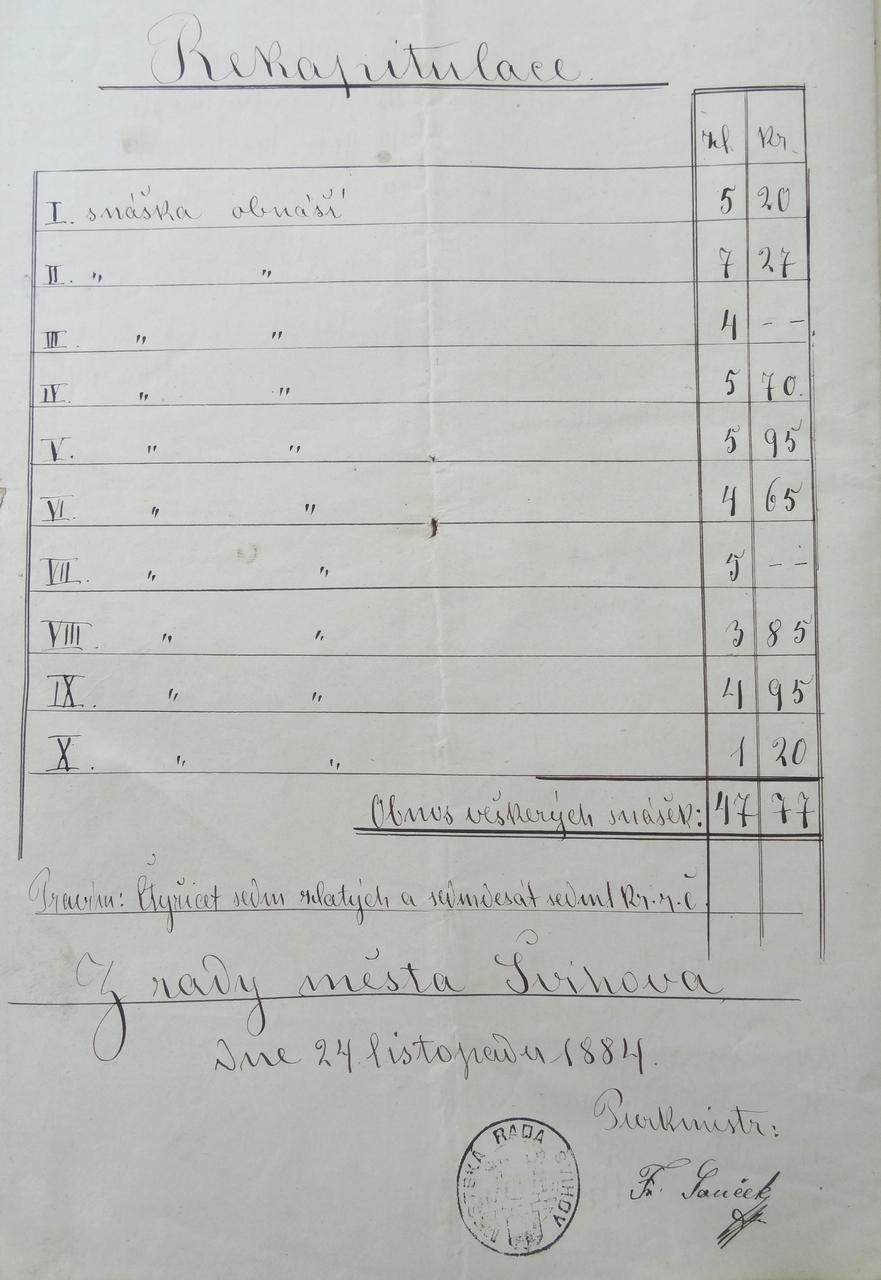 Rekapitulace.
zl. Kr.
I. snáška obnáší 5 20
II. " " 7 27
III. " " 4 - -
IV. " " 5 70.
V. " " 5 95
VI. " " 4 65
VII. " " 5 - -
VIII. " " 3 85
IX. " " 4 95
X. " " 1 20
Obnos veškerých snášek: 47 77
Pravím: Čtyřicet sedm zlatých a sedmdesát sedm Kr. r. č.
Z rady města Švihova
Dne 24. listopadu 1884.
Purkmistr:
MĚSTSKÁ RADA ŠVIHOV
Fr. Souček